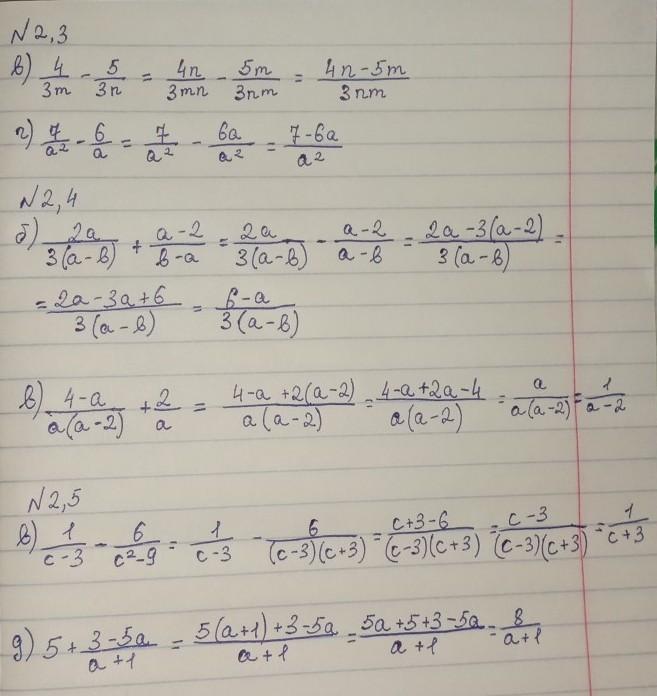 №2,3
в) 4/(3m) - 5/(3n) = 4n/(3mn) - 5m/(3nm) = (4n-5m)/(3nm)
г) 7/a² - 6/a = 7/a² - 6a/a² = (7-6a)/a²
№2,4
б) 2a/(3(a-в)) + (a-2)/(в-a) = 2a/(3(a-в)) - (a-2)/(a-в) = (2a-3(a-2))/(3(a-в)) =
= (2a-3a+6)/(3(a-в)) = (6-a)/(3(a-в))
в) (4-a)/(a(a-2)) + 2/a = (4-a+2(a-2))/(a(a-2)) = (4-a+2a-4)/(a(a-2)) = a/(a(a-2)) = 1/(a-2)
№2,5
в) 1/(c-3) - 6/(c²-9) = 1/(c-3) - 6/((c-3)(c+3)) = (c+3-6)/((c-3)(c+3)) = (c-3)/((c-3)(c+3)) = 1/(c+3)
д) 5 + (3-5a)/(a+1) = (5(a+1)+3-5a)/(a+1) = (5a+5+3-5a)/(a+1) = 8/(a+1)